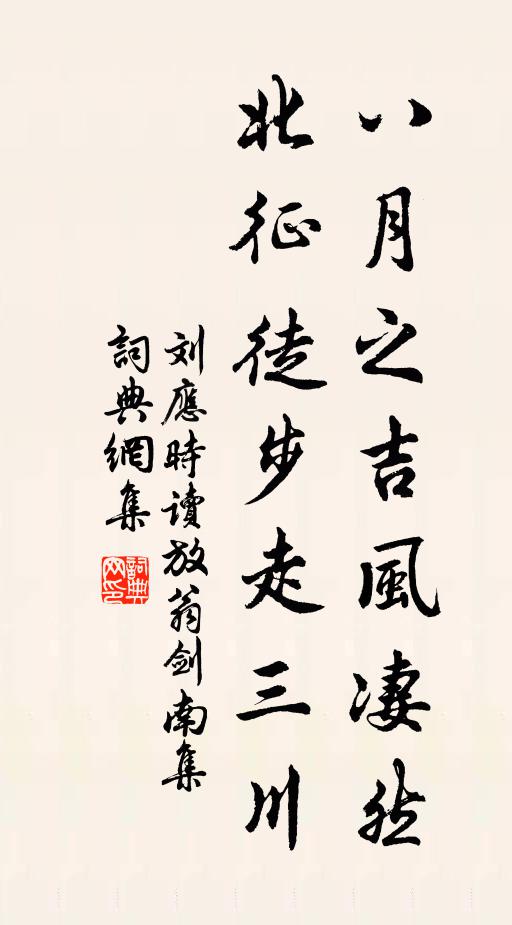 八月之吉風凄然
北征徒步走三川
刘應時讀放翁剑南集
詞典網集
詞典网印